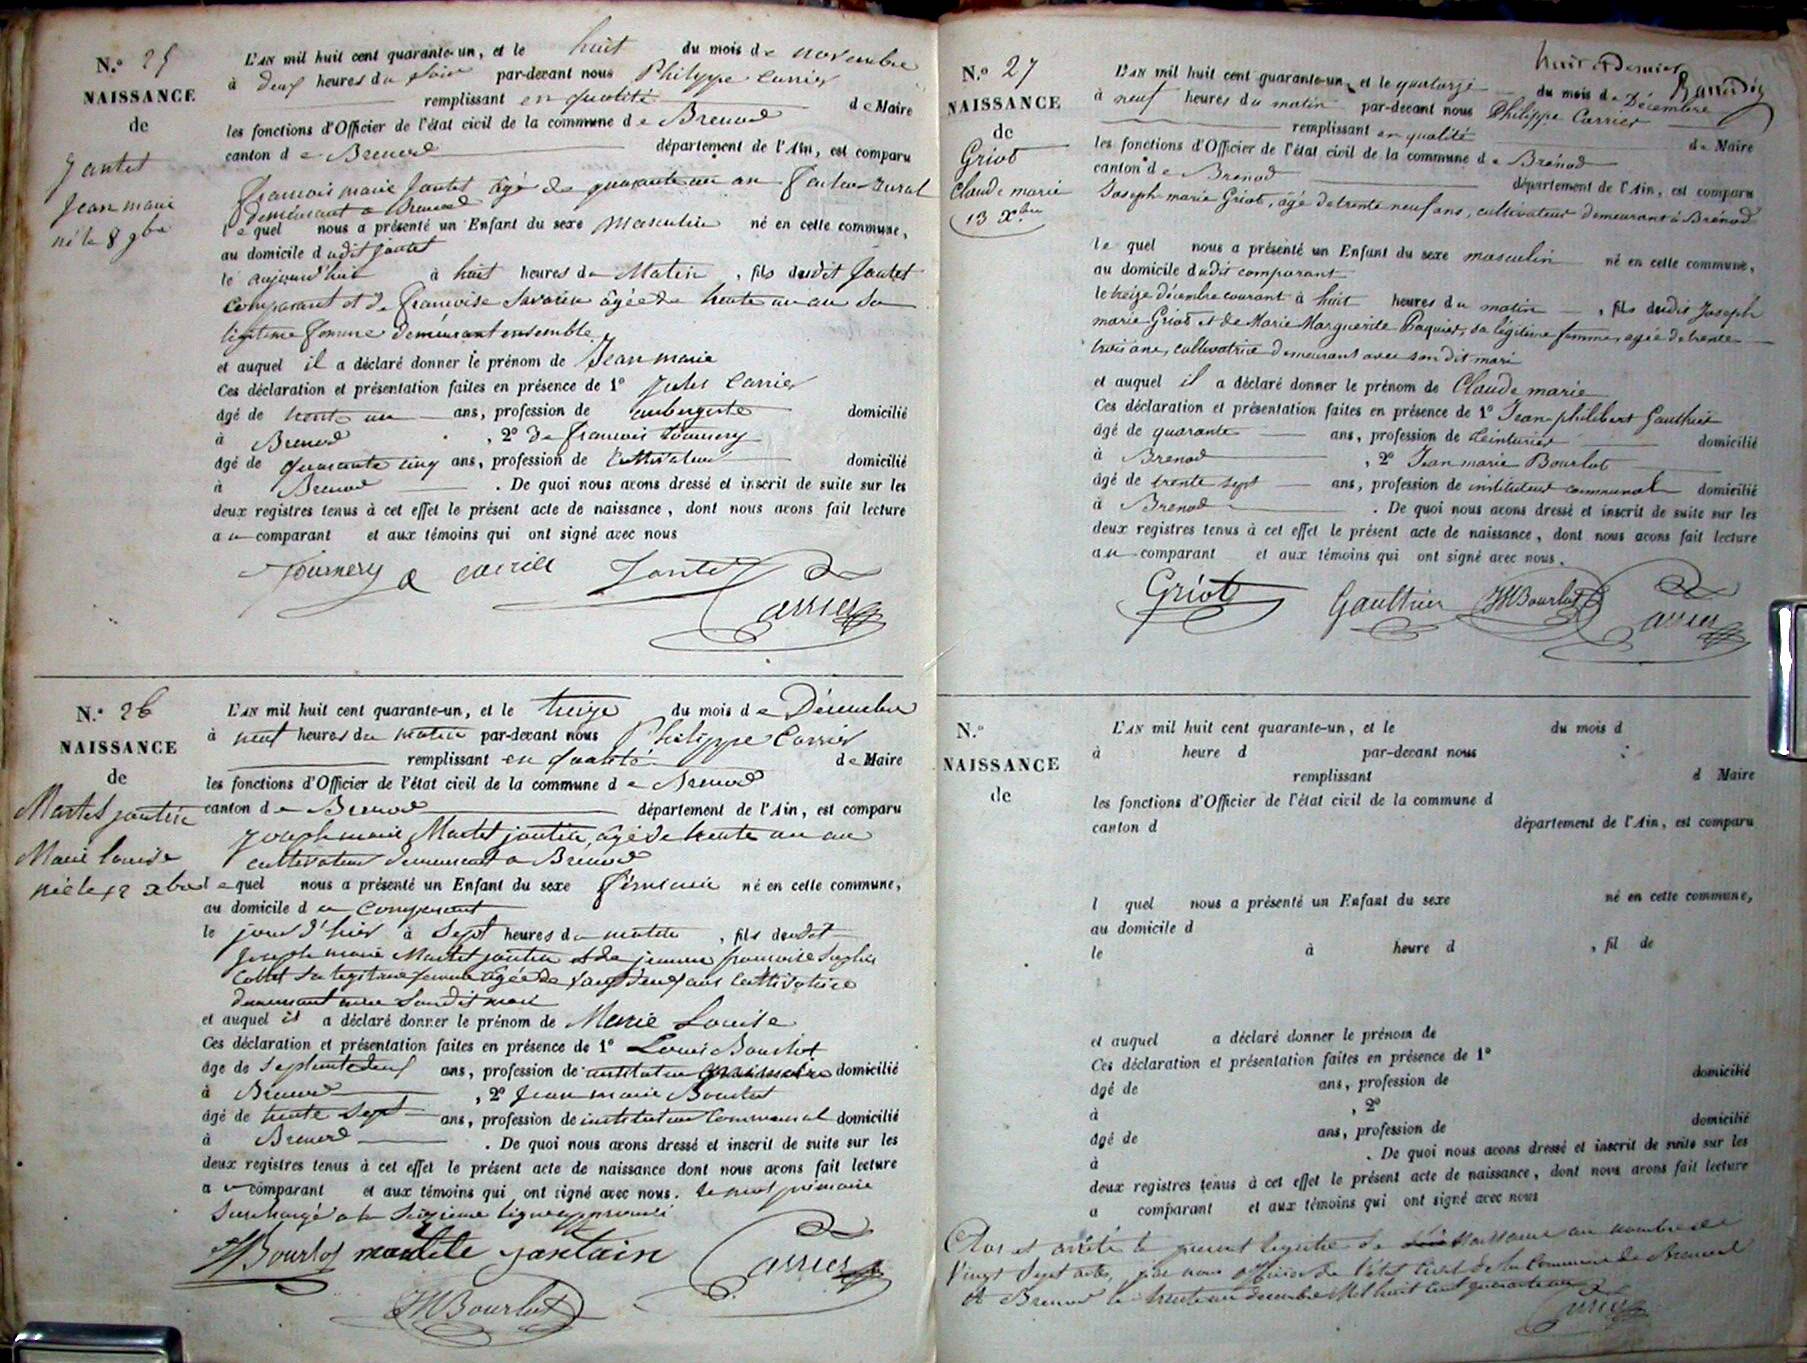 N.º 25
NAISSANCE
de
Jantet
Jean marie
né le 8 9bre
L'AN mil huit cent quarante-un, et le huit du mois de novembre
à deux heures du soir par-devant nous Philippe Carrier
remplissant en qualité de Maire
les fonctions d'Officier de l'état civil de la commune de Brenod
canton de Brenod département de l'Ain, est comparu
françois marie Jantet âgé de quarante un an facteur rural
demeurant a Brenod
lequel nous a présenté un Enfant du sexe masculin né en cette commune,
au domicile dudit jantet
le aujourd'hui à huit heures du Matin, fils dudit Jantet
comparant et de françoise Savarin âgée de trente un an sa
légitime femme demeurant ensemble
et auquel il a déclaré donner le prénom de Jean marie
Ces déclaration et présentation faites en présence de 1º Jules Carrier
âgé de trente un ans, profession de aubergiste domicilié
à Brenod, 2º De françois tournery
âgé de quarante cinq ans, profession de Cultivateur domicilié
à Brenod. De quoi nous avons dressé et inscrit de suite sur les
deux registres tenus à cet effet le présent acte de naissance, dont nous avons fait lecture
au comparant et aux témoins qui ont signé avec nous
Tournery Jantet
Carrier
N.º 26
NAISSANCE
de
Martel jantin
Marie louise
née le 12 xbre
L'AN mil huit cent quarante-un, et le treize du mois de Décembre
à neuf heures du matin par-devant nous Philippe Carrier
remplissant en qualité de Maire
les fonctions d'Officier de l'état civil de la commune de Brenod
canton de Brenod département de l'Ain, est comparu
Joseph marie Martel jantin, âgé de trente un an
cultivateur demeurant a Brenod
lequel nous a présenté un Enfant du sexe féminin né en cette commune,
au domicile du comparant
le jour d'hier à Sept heures du matin, fils dudit
Joseph marie Martel jantin et de jeanne françoise Sophie
Collet sa legitime femme agée de vingt deux ans cultivatrice
demeurant avec son dit mari
et auquel il a déclaré donner le prénom de Marie Louise
Ces déclaration et présentation faites en présence de 1º Louis Bourlot
âgé de septante deux ans, profession de instituteur primaire domicilié
à Brenod, 2º Jean marie Bourlot
âgé de trente sept ans, profession de instituteur Communal domicilié
à Brenod. De quoi nous avons dressé et inscrit de suite sur les
deux registres tenus à cet effet le présent acte de naissance dont nous avons fait lecture
au comparant et aux témoins qui ont signé avec nous. le mot primaire
Surchargé a la Seizieme ligne approuvé
Bourlot jantain Carrier
JM Bourlot
huit et dernier
N.º 27
NAISSANCE
de
Griot
Claude marie
13 Xbre
L'AN mil huit cent quarante-un, et le quatorze du mois de Décembre
à neuf heures du matin par-devant nous Philippe Carrier
remplissant en qualité de Maire
les fonctions d'Officier de l'état civil de la commune de Brénod
canton de Brenod département de l'Ain, est comparu
Joseph-marie Griot, âgé de trente neuf ans, cultivateur demeurant à Brénod
lequel nous a présenté un Enfant du sexe masculin né en cette commune,
au domicile dudit comparant
le treize décembre courant à huit heures du matin, fils dudit Joseph
marie Griot et de Marie Marguerite Paquier, sa légitime femme, agée de trente
trois ans, cultivatrice demeurant avec son dit mari
et auquel il a déclaré donner le prénom de Claude marie
Ces déclaration et présentation faites en présence de 1º Jean-philibert Gauthier
âgé de quarante ans, profession de teinturier domicilié
à Brenod, 2º Jean marie Bourlot
âgé de trente sept ans, profession de instituteur communal domicilié
à Brenod. De quoi nous avons dressé et inscrit de suite sur les
deux registres tenus à cet effet le présent acte de naissance, dont nous avons fait lecture
au comparant et aux témoins qui ont signé avec nous.
Griot Gauthier JM Bourlot Carrier
N.º
NAISSANCE
de
L'AN mil huit cent quarante-un, et le du mois d
à heure d par-devant nous
remplissant d Maire
les fonctions d'Officier de l'état civil de la commune d
canton d département de l'Ain, est comparu
l quel nous a présenté un Enfant du sexe né en cette commune,
au domicile d
le à heure d , fil de
et auquel a déclaré donner le prénom de
Ces déclaration et présentation faites en présence de 1º
âgé de ans, profession de domicilié
à , 2º
âgé de ans, profession de domicilié
à . De quoi nous avons dressé et inscrit de suite sur les
deux registres tenus à cet effet le présent acte de naissance, dont nous avons fait lecture
a comparant et aux témoins qui ont signé avec nous
Clos et arrêté le present registre de Naissance au nombre de
Vingt Sept actes, par nous officier de l'état Civil de la Commune de Brenod
A Brenod le trente un decembre Mil huit cent quarante un
Carrier